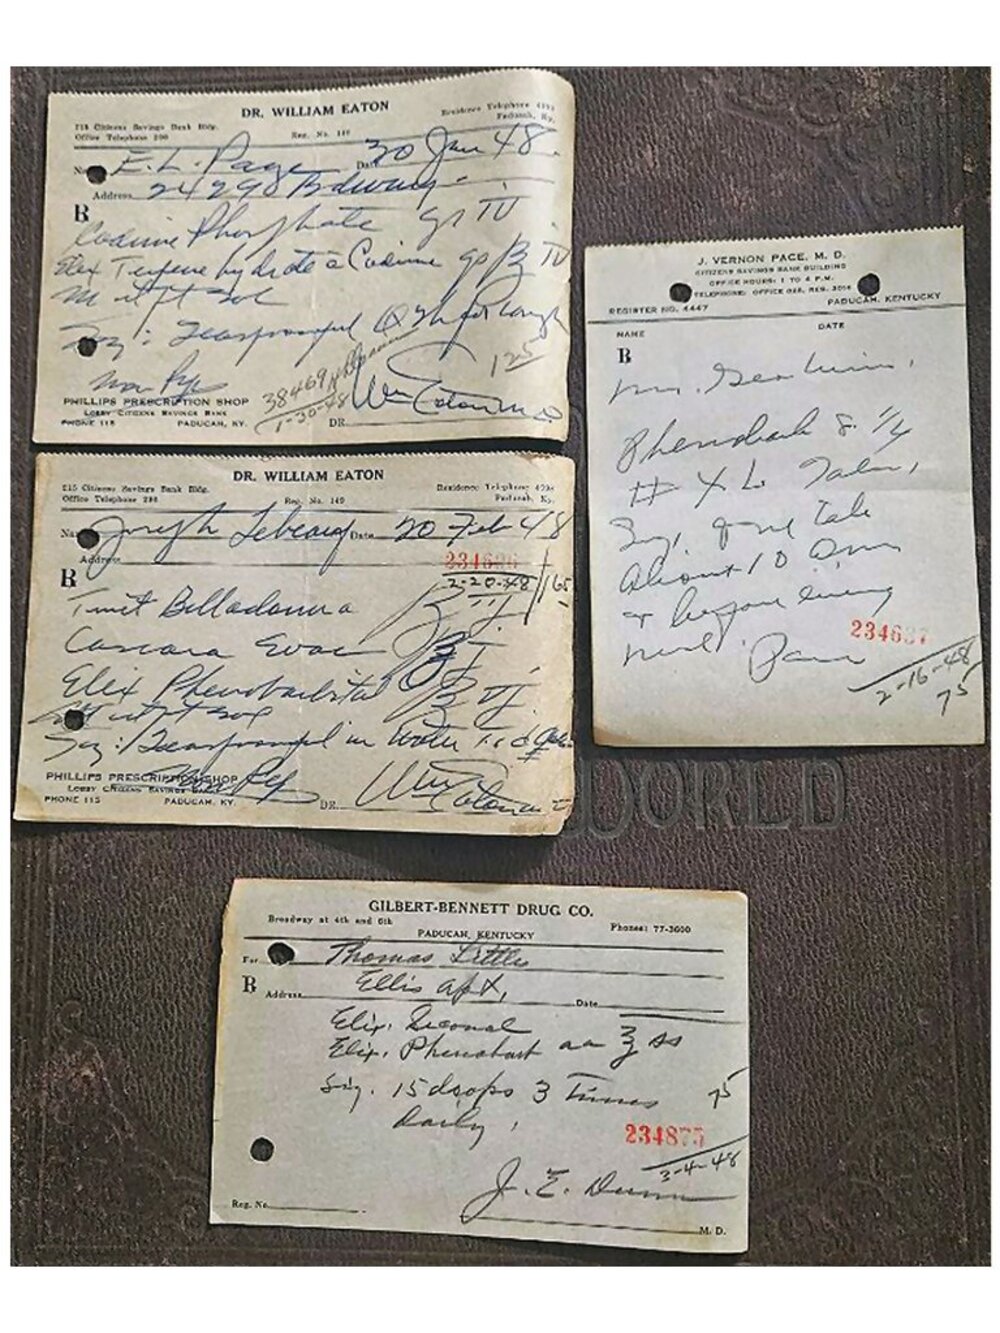 DR. WILLIAM EATON
215 Citizens Savings Bank Bldg.
Office Telephone 286
Reg. No. 149
Residence Telephone
Paducah, Ky.
E. L. Page Date 30 Jan 48
Address 2429 Bdway
R
Codeine Phosphate gr IV
Elix Terpene hydrate c Codeine
M et ft Sol
Sig: Teaspoonful Q 2h for Cough
Non Rep
38469
1-30-48
125
PHILLIPS PRESCRIPTION SHOP
LOBBY CITIZENS SAVINGS BANK
PHONE 115 PADUCAH, KY.
DR. Wm Eaton M.D.
J. VERNON PACE, M. D.
CITIZENS SAVINGS BANK BUILDING
OFFICE HOURS: 1 TO 4 P.M.
TELEPHONE: OFFICE 625, RES. 3014
REGISTER NO. 4447 PADUCAH, KENTUCKY
NAME DATE
R
Phenobarb
Sig. one tab
About 10 a.m.
& before evening
meal. Pace
234637
2-16-48
75
DR. WILLIAM EATON
215 Citizens Savings Bank Bldg.
Office Telephone 286
Reg. No. 149
Residence Telephone
Paducah, Ky.
Joseph Date 20 Feb 48
Address
2-20-48 165
R
Tinct Belladonna
Cascara Evac
Elix Phenobarbital
M et ft Sol
Sig: Teaspoonful in Water
Non Rep
PHILLIPS PRESCRIPTION SHOP
LOBBY CITIZENS SAVINGS BANK
PHONE 115 PADUCAH, KY.
DR. Wm Eaton M.D.
WORLD
GILBERT-BENNETT DRUG CO.
Broadway at 4th and 6th Phones: 77-3600
PADUCAH, KENTUCKY
For Thomas Little
R Address Ellis apt, Date
Elix. Seconal
Elix. Phenobarb aa ℥ ss
Sig. 15 drops 3 Times
Daily,
75
234875
3-4-48
J. E. Dunn
Reg. No. M. D.